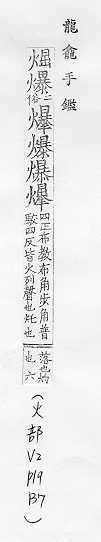 龍龕手鑑
爆二俗爆爆
四正布教布角步角普
駁四反皆火列聲也灺也
落也
也六
(火部 V2 P19 B7)